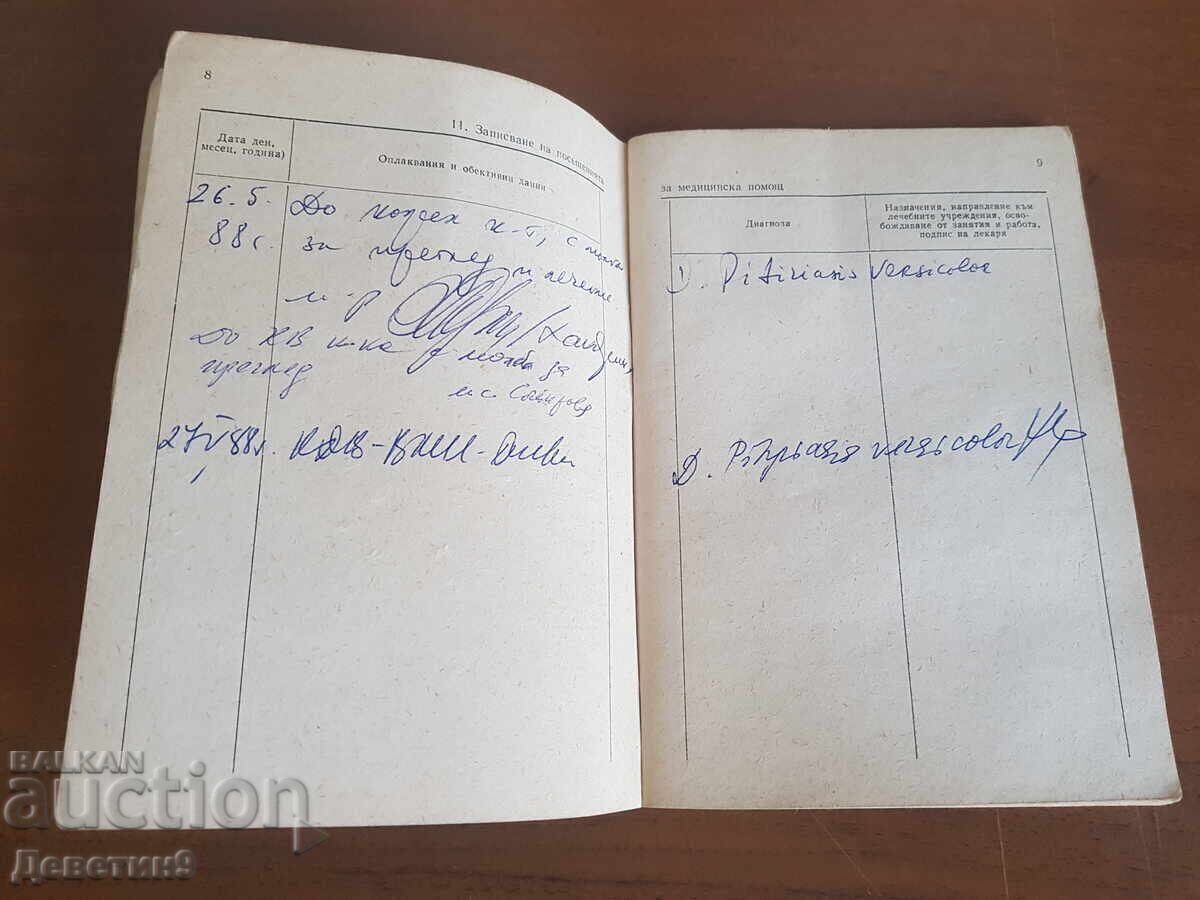 8
11. Записване на посещенията
Дата ден,
месец, година)
Оплаквания и обективни данни
26.5.
88г.
До кожен к-т, с молба
за преглед и лечение
м-р
До КВ к-ка с молба за
преглед
27 V 88г.
9
за медицинска помощ
Диагноза
Назначения, направление към
лечебните учреждения, осво-
бождаване от занятия и работа,
подпис на лекаря
D. Pitiriasis versicolor
D. Pityriasis versicolor
BALKAN
auction
Деветин9